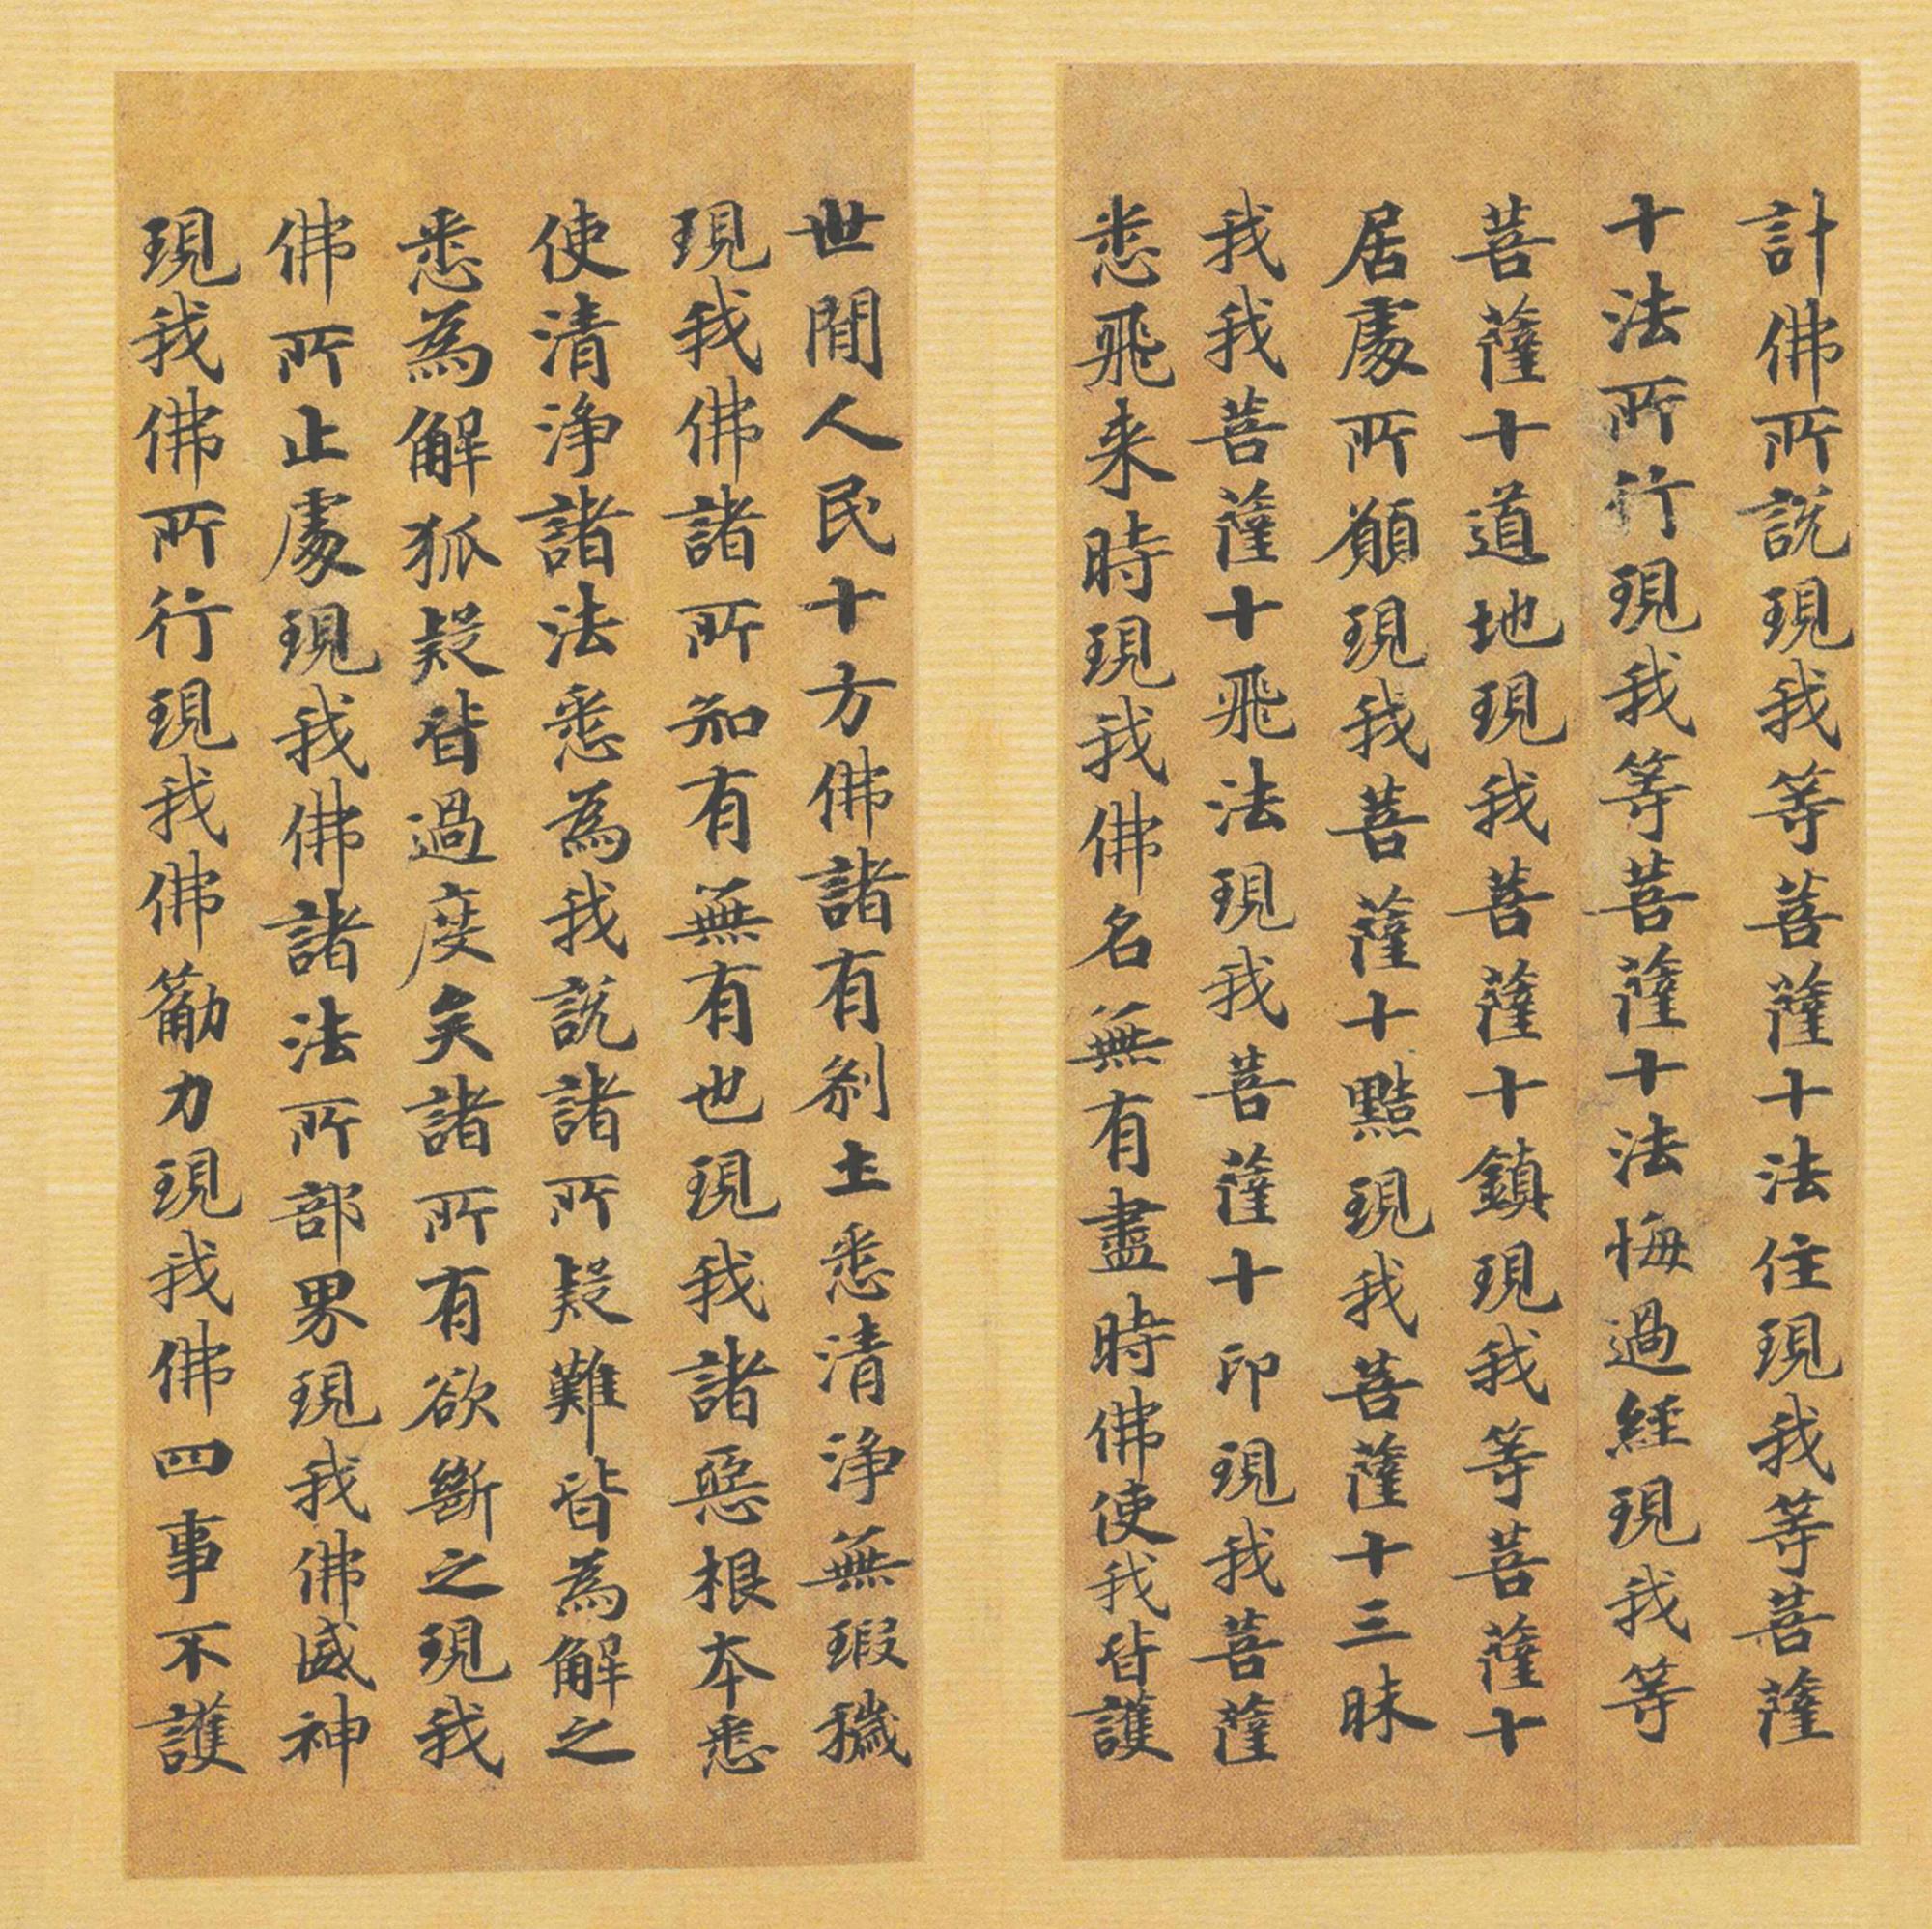 計佛所説現我等菩薩十法住現我等菩薩
十法所行現我等菩薩十法悔過經現我等
菩薩十道地現我菩薩十鎮現我等菩薩十
居處所願現我菩薩十黠現我菩薩十三昧
我我菩薩十飛法現我菩薩十印現我菩薩
悉飛来時現我佛名無有盡時佛使我皆護
世間人民十方佛諸有刹土悉清淨無瑕穢
現我佛諸所知有無有也現我諸惡根本悉
使清淨諸法悉為我説諸所疑難皆為解之
悉為解狐疑皆過度矣諸所有欲斷之現我
佛所止處現我佛諸法所部界現我佛威神
現我佛所行現我佛勸力現我佛四事不護